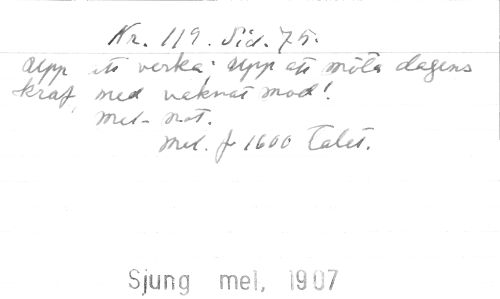 Nr. 119. Sid. 75.
Upp att verka; Upp att möta dagens
kraf, med vaknat mod!
mel-not.
mel. fr 1600 talet.
Sjung mel, 1907